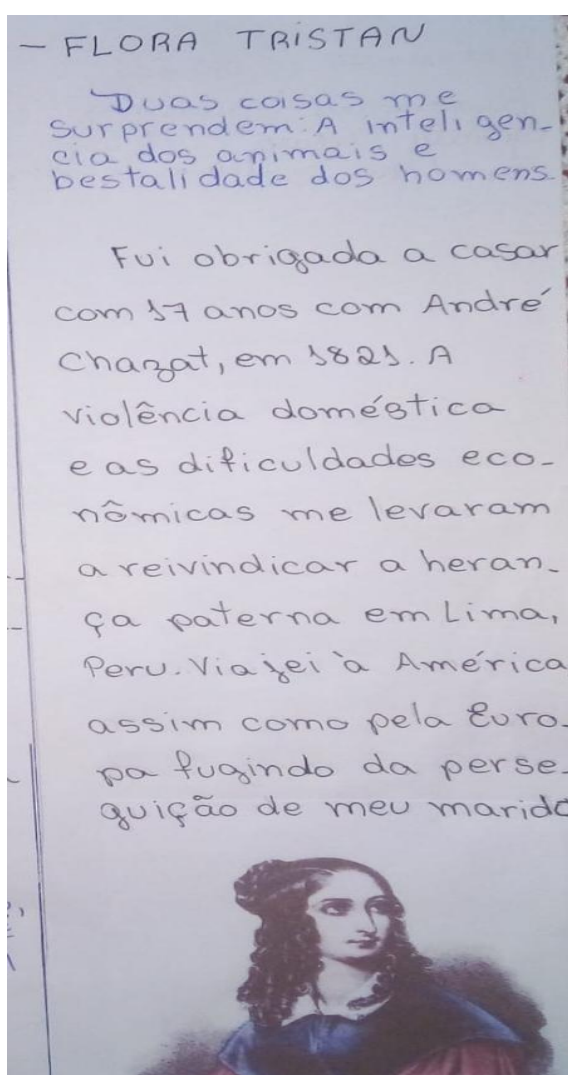 - FLORA TRISTAN
Duas coisas me
surprendem: A inteligen-
cia dos animais e
bestalidade dos homens.
Fui obrigada a casar
com 17 anos com André
Chazat, em 1821. A
violência doméstica
e as dificuldades eco-
nômicas me levaram
a reivindicar a heran-
ça paterna em Lima,
Peru. Viajei à América
assim como pela Euro-
pa fugindo da perse-
guição de meu marido